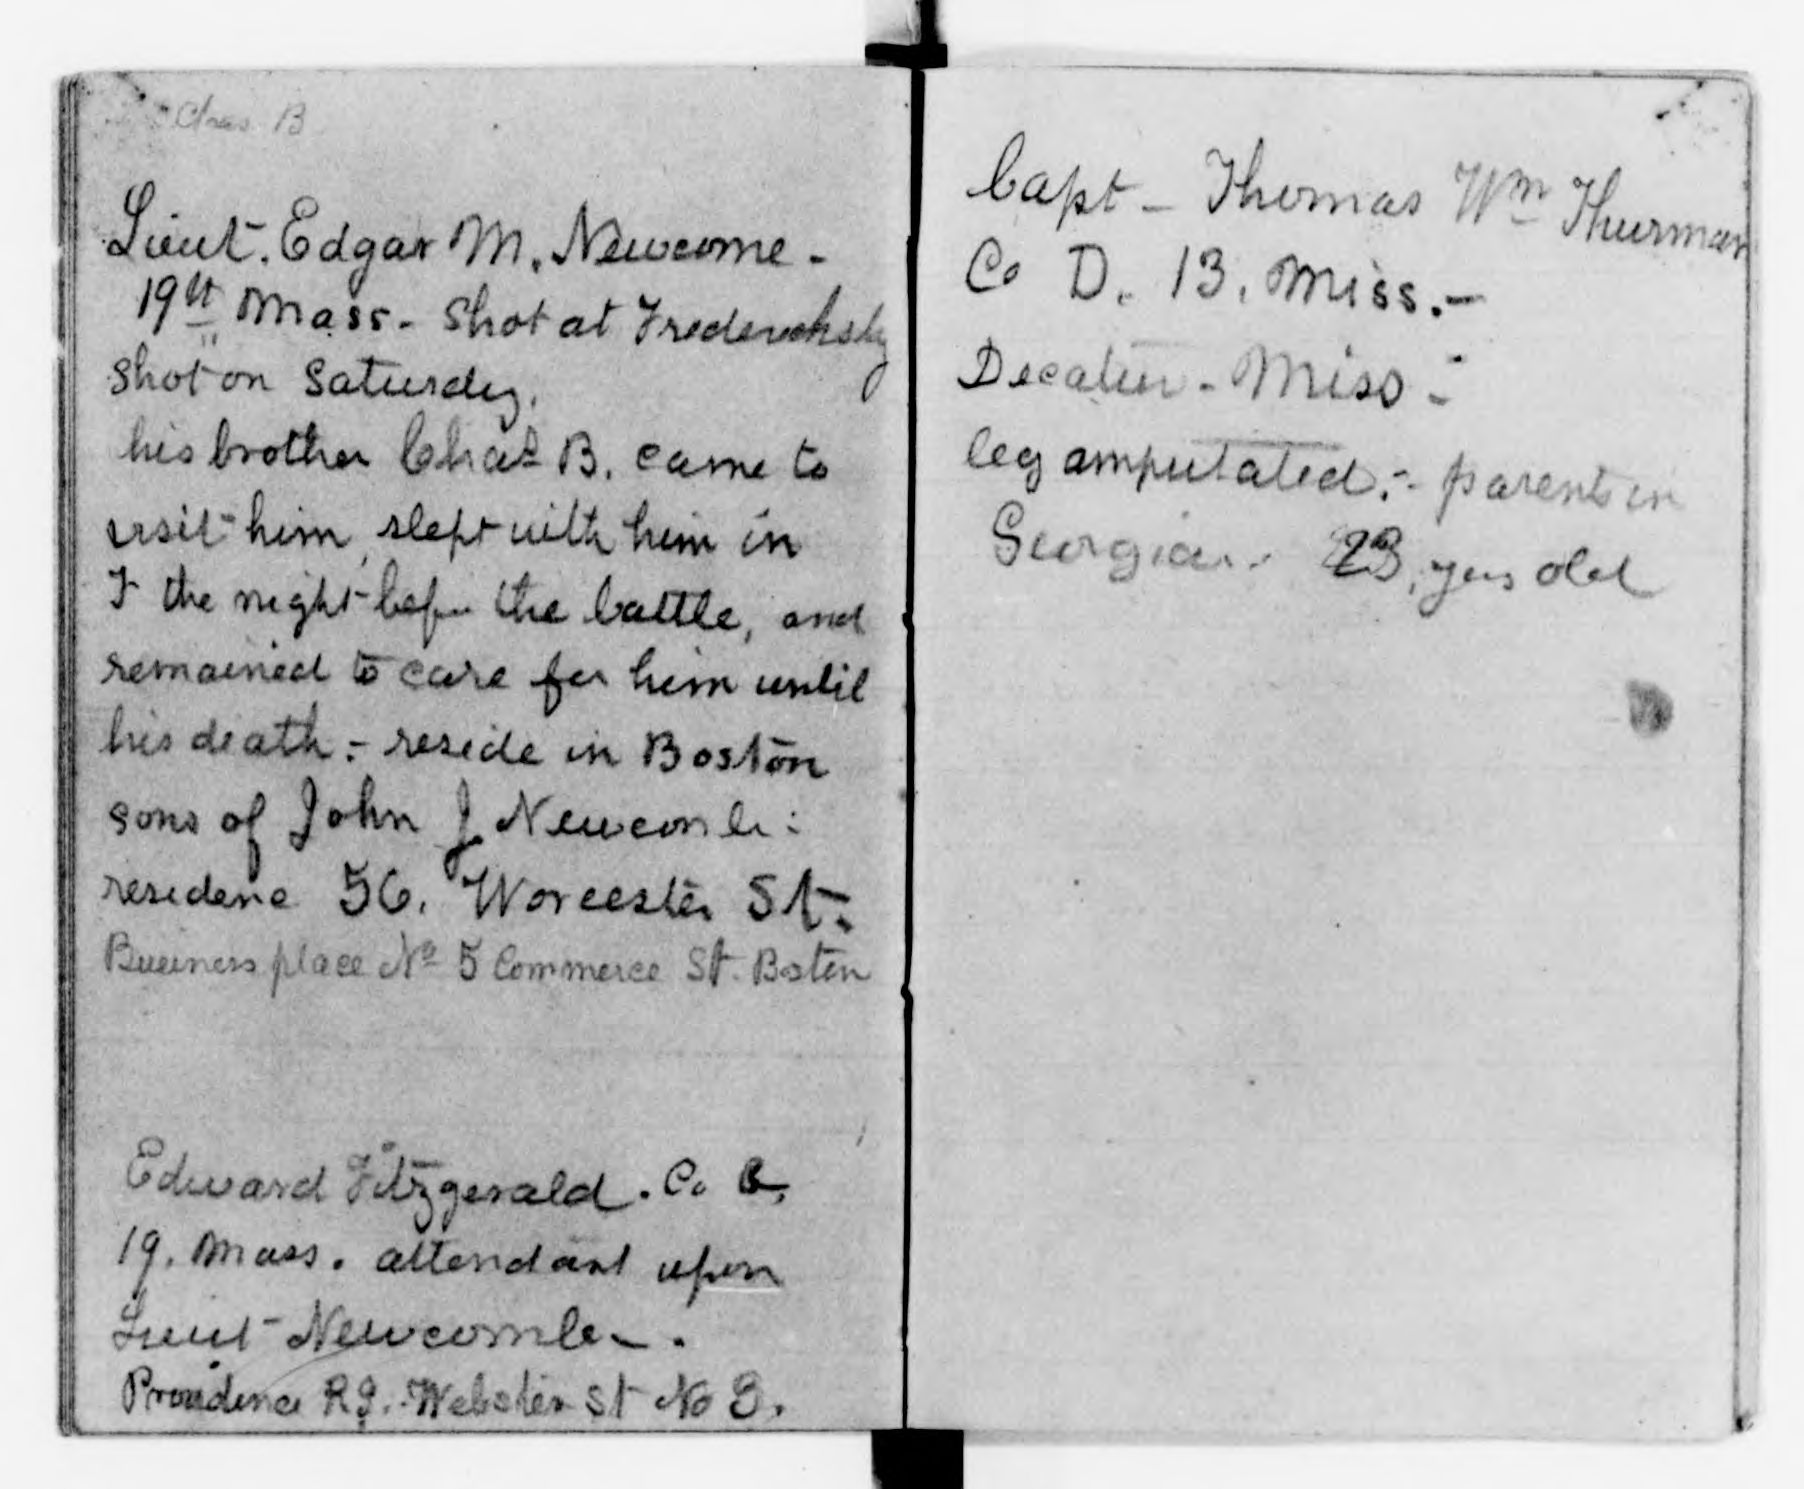 Chas. B
Lieut. Edgar M. Newcome -
19th Mass - Shot at Fredericksbg
shot on Saturday.
his brother Chas B. came to
visit him, slept with him in
F the night befor the battle, and
remained to care for him until
his death. - reside in Boston
sons of John J Newcomb:
residene 56. Worcester St.
Business place No 5 Commerce St. Boston
Edward Fitzgerald. Co
19. Mass. attendant upon
Lieut Newcombe.
Providence R.I. Webster St No 3.
Capt - Thomas Wm Thurman
Co D. 13. Miss. -
Decatur - Miss -
leg amputated. - parents in
Georgia. 23, yrs old